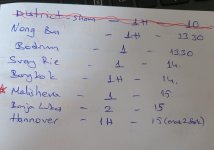 District - Shou - 1H - 10
Nong Bua - 1H - 13.30
Bodrum - 1 - 13.30
Svay Rie - 1 - 14.
Bangkok - 1H - 14.
* Malisheva - 1 - 15
Banja Luka - 2 - 15
Hannover - 1H - 15